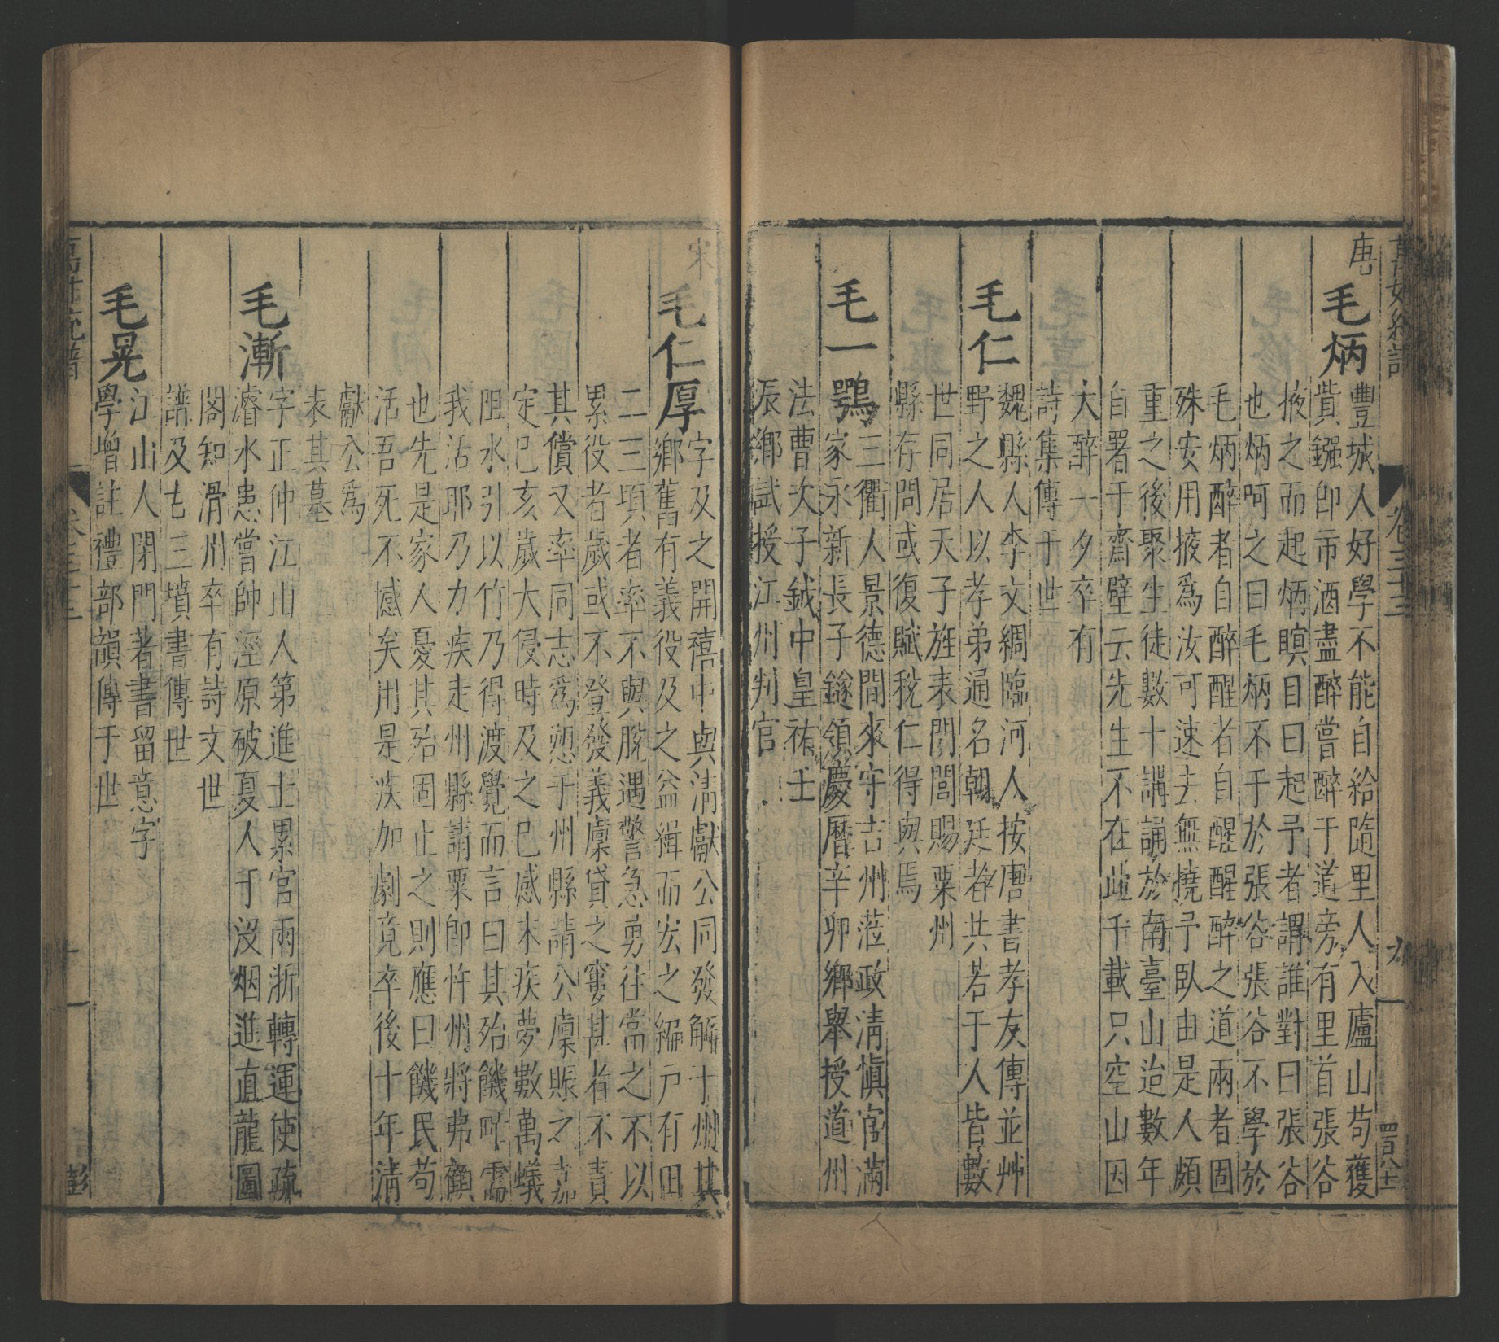 萬姓統譜
卷三十三
九
唐
毛炳
豐城人好學不能自給隨里人入廬山苟獲
貲鏹即市酒盡醉嘗醉于道旁有里首張谷
掖之而起炳瞑目曰起予者謂誰對曰張谷
也炳呵之曰毛炳不干於張谷張谷不學於
毛炳醉者自醉醒者自醒醒醉之道兩者固
殊安用掖爲汝可速去無撓予臥由是人頗
重之後聚生徒數十講誦於南臺山迨數年
自署于齋壁云先生不在此千載只空山因
大醉一夕卒有
詩集傳于世
毛仁
魏縣人李文綢臨河人按唐書孝友傳並艸
野之人以孝弟通名朝廷者共若干人皆數
世同居天子旌表門閭賜粟州
縣存問或復賦稅仁得與焉
毛一鶚
三衢人景德間來守吉州蒞政清愼官滿
家永新長子鐩領慶曆辛卯鄉舉授道州
法曹次子鉞中皇祐壬
辰鄉試授江州判官
宋
毛仁厚
字及之開禧中與清獻公同發觧于州其
鄉舊有義役及之益緝而宏之編戸有田
二三頃者率不與脫遇警急勇往當之不以
累役者歲或不登發義廩貸之窶甚者不責
其償又率同志爲愬于州縣請公廩賬之嘉
定己亥歲大侵時及之已感末疾夢數萬蟻
阻水引以竹乃得渡覺而言曰其殆饑吽需
我活耶乃力疾走州縣請粟即忤州將弗顧
也先是家人憂其殆固止之則應曰饑民苟
活吾死不憾矣用是疾加劇竟卒後十年清
獻公爲
表其墓
毛漸
字正仲江山人第進士累官兩浙轉運使疏
濬水患嘗帥涇原破夏人于沒烟進直龍圖
閣知滑州卒有詩文世
譜及古三墳書傳世
毛晃
江山人閉門著書留意字
學增註禮部韻傳于世
萬姓統譜
卷三十三
十
彭